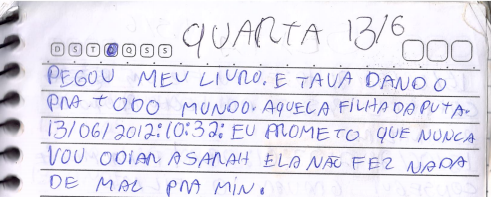 QUARTA 13/6
D S T Q Q S S
PEGOU MEU LIVRO. E TAVA DANDO
PRA TODO MUNDO. AQUELA FILHA DA PUTA.
13/06/2012: 10:32: EU PROMETO QUE NUNCA
VOU ODIAR A SARAH ELA NÃO FEZ NADA
DE MAL PRA MIN.